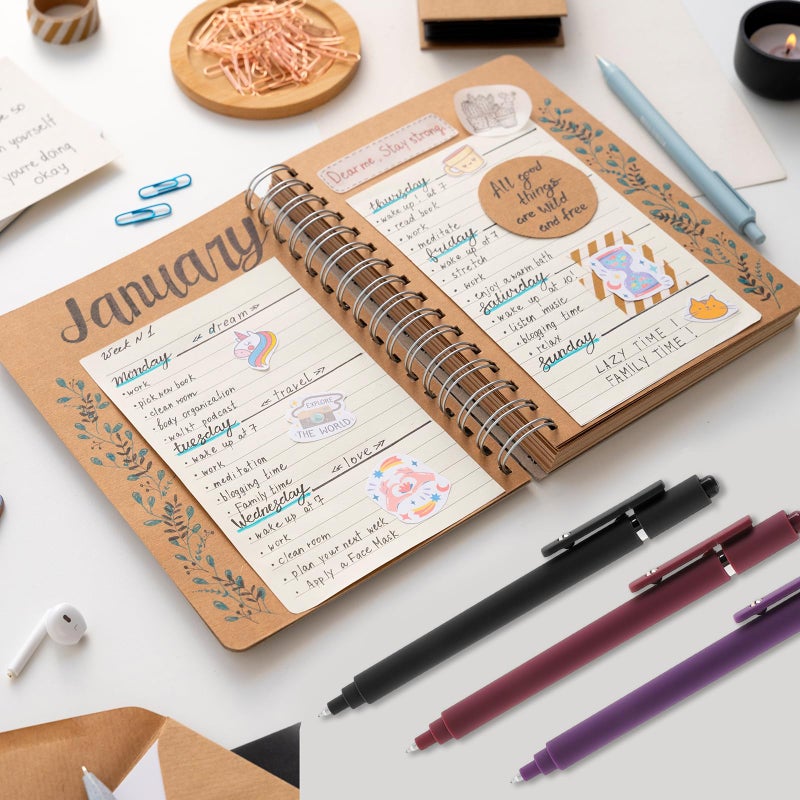 be so
n yourself
you're doing
okay
January
Week N 1
« dream »
Monday
• work
• pick new book
• clean room
• body organization
• walk+ podcast
« travel »
EXPLORE
THE WORLD
tuesday
• wake up at 7
• work
• meditation
• blogging time
• Family time
« love »
Wednesday
• wake up at 7
• work
• clean room
• plan your next week
• Apply a Face Mask
Dear me, Stay strong.
thursday
• wake up! at 7
• read book
• work
• meditate
All good
things
are wild
and free
friday
wake up at 7
stretch
work
• enjoy a warm bath
Saturday
• wake up at 10!
• listen music
• blogging time
• relax
Sunday
LAZY TIME!
FAMILY TIME!!